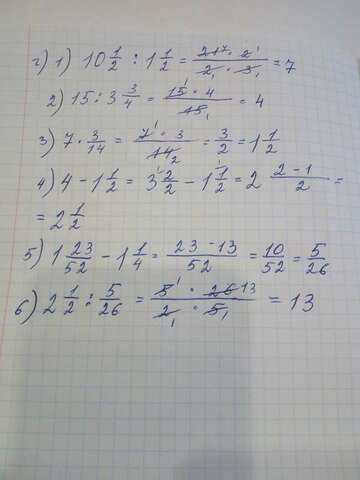 г) 1) 10 1/2 : 1 1/2 = (21 7 · 2 1)/(2 1 · 3 1) = 7
2) 15 : 3 3/4 = (15 1 · 4)/(15 1) = 4
3) 7 · 3/14 = (7 1 · 3)/(14 2) = 3/2 = 1 1/2
4) 4 - 1 1/2 = 3 2/2 - 1 1/2 = 2 (2-1)/2 =
= 2 1/2
5) 1 23/52 - 1 1/4 = (23-13)/52 = 10/52 = 5/26
6) 2 1/2 : 5/26 = (5 1 · 26 13)/(2 1 · 5 1) = 13